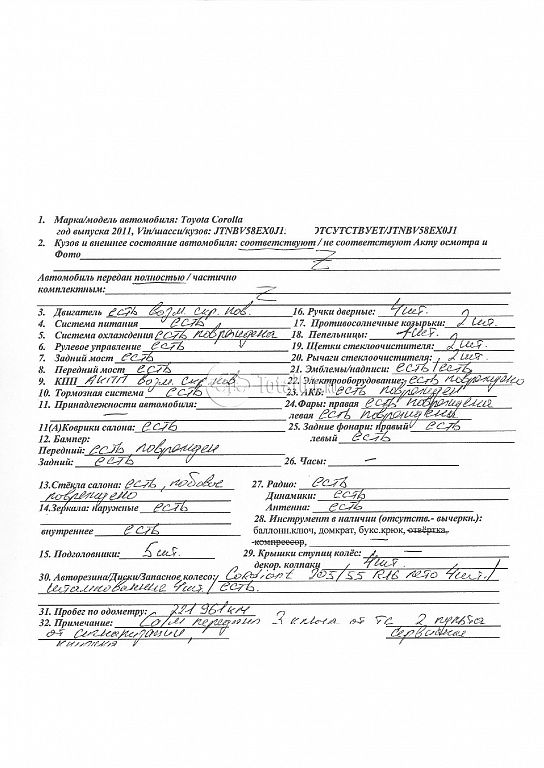 1. Марка/модель автомобиля: Toyota Corolla
год выпуска 2011, Vin/шасси/кузов: JTNBV58EX0J1. ОТСУТСТВУЕТ/JTNBV58EX0J1
2. Кузов и внешнее состояние автомобиля: соответствуют / не соответствуют Акту осмотра и
Фото Z
Автомобиль передан полностью / частично
комплектным: Z
3. Двигатель есть возм. скр. пов.
4. Система питания есть
5. Система охлаждения есть повреждена
6. Рулевое управление есть
7. Задний мост есть
8. Передний мост есть
9. КПП АКПП возм. скр. пов.
10. Тормозная система есть
11. Принадлежности автомобиля:
—
11(А)Коврики салона: есть
12. Бампер:
Передний: есть поврежден
Задний: есть
16. Ручки дверные: 4 шт.
17. Противосолнечные козырьки: 2 шт.
18. Пепельницы: 1 шт.
19. Щетки стеклоочистителя: 2 шт.
20. Рычаги стеклоочистителя: 2 шт.
21. Эмблемы/надписи: есть/есть
22. Электрооборудование: есть повреждено
23. АКБ: есть поврежден
24.Фары: правая есть повреждена
левая есть повреждена
25. Задние фонари: правый есть
левый есть
26. Часы: —
13.Стёкла салона: есть, лобовое
повреждено
14.Зеркала: наружные есть
внутреннее есть
15. Подголовники: 5 шт.
27. Радио: есть
Динамики: есть
Антенна: есть
28. Инструмент в наличии (отсутств.- вычеркн.):
баллонн.ключ, домкрат, букс.крюк, отвёртка,
компрессор,
29. Крышки ступиц колёс:
декор. колпаки 4 шт.
30. Авторезина/Диски/Запасное колесо: Cordiant 205/55 R16 лето 4 шт./
штампованные 4 шт./ есть.
31. Пробег по одометру: 221 961 км
32. Примечание: С а/м передано 3 ключа от ТС 2 пульта
от сигнализации, сервисная
книжка